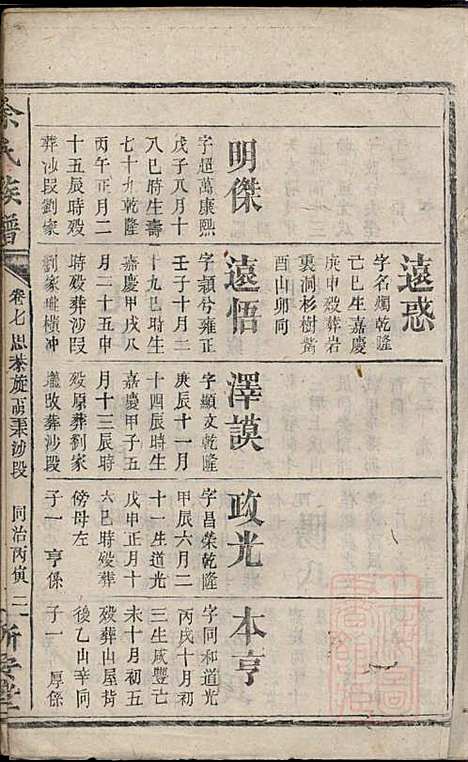 明傑
字超萬康熙
戊子八月十
八巳時生壽
七十九乾隆
丙午正月二
十五辰時殁
葬沙段劉家
遠惑
字名燭乾隆
亡巳生嘉慶
庚申殁葬岩
裏洞杉樹
酉山卯向
遠悟
字頴兮雍正
壬子十月二
十九巳時生
嘉慶甲戌八
月二十五申
時殁葬沙段
劉家橫冲
澤謨
字顯文乾隆
庚辰十一月
十四辰時生
嘉慶甲子五
月十三辰時
殁原葬劉家
改葬沙段
政光
字昌榮乾隆
甲辰六月二
十一生道光
戊申正月十
六巳時殁葬
傍母左
子一 亨係
本亨
字同和道光
丙戌十月初
三生咸豐亡
未十月初五
殁葬山屋背
後乙山幸同
子一 厚係
余氏族譜
卷七 思恭 秉沙段
同治丙寅 二
新安堂